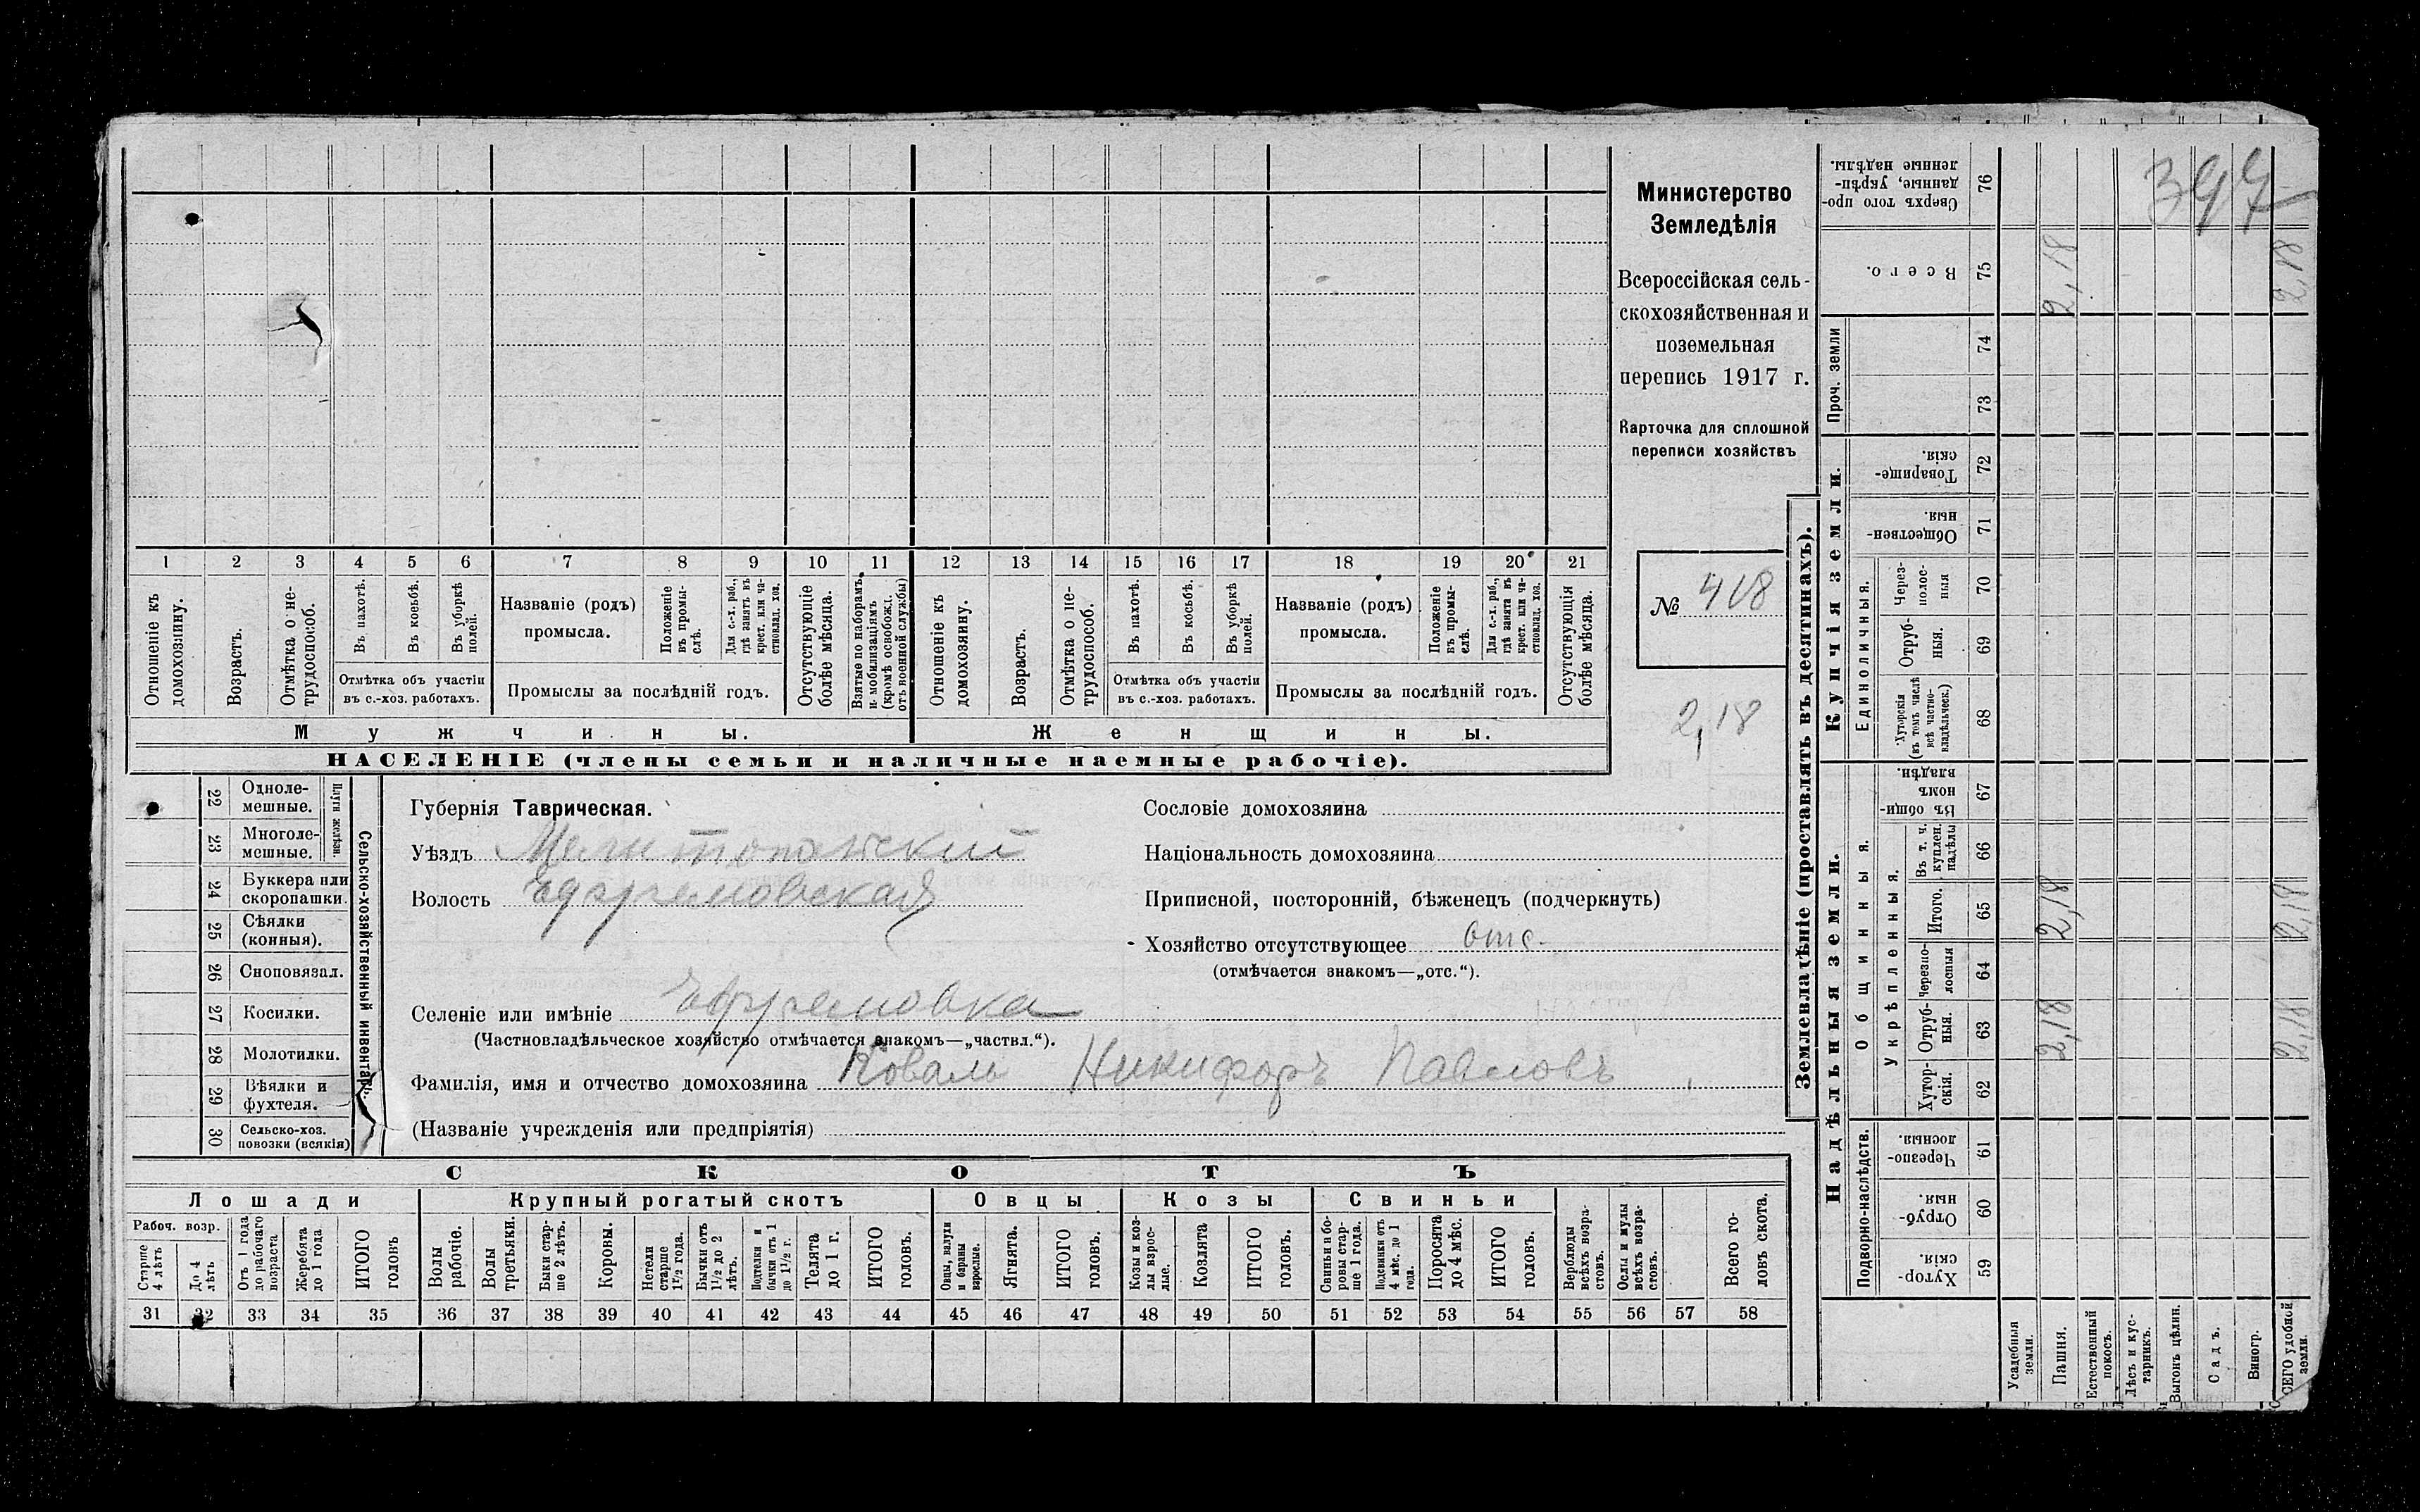 397
Министерство
Земледѣлія
Всероссійская сель-
скохозяйственная и
поземельная
перепись 1917 г.
Карточка для сплошной
переписи хозяйствъ
№ 418
2,18
1 2 3 4 5 6 7 8 9 10 11 12 13 14 15 16 17 18 19 20 21
Отношеніе къ домохозяину.
Возрастъ.
Отмѣтка о не-трудоспособ.
Въ пахотѣ.
Въ косьбѣ.
Въ уборкѣ полей.
Отмѣтка объ участіи
въ с.-хоз. работахъ.
Названіе (родъ)
промысла.
Положеніе въ промы-слѣ.
Для с.-х. раб., гдѣ занятъ въ крест. или ча-стновлад. хоз.
Промыслы за послѣдній годъ.
Отсутствующіе болѣе мѣсяца.
Взятые по наборамъ и мобилизаціямъ (кромѣ освобожд. отъ военной службы)
Отношеніе къ домохозяину.
Возрастъ.
Отмѣтка о не-трудоспособ.
Въ пахотѣ.
Въ косьбѣ.
Въ уборкѣ полей.
Отмѣтка объ участіи
въ с.-хоз. работахъ.
Названіе (родъ)
промысла.
Положеніе въ промы-слѣ.
Для с.-х. раб., гдѣ занята въ крест. или ча-стновлад. хоз.
Промыслы за послѣдній годъ.
Отсутствующія болѣе мѣсяца.
Мужчины.
Женщины.
НАСЕЛЕНІЕ (члены семьи и наличные наемные рабочіе).
22 Одноле-мешные.
23 Многоле-мешные.
Плуги желѣзн.
24 Буккера или скоропашки.
25 Сѣялки (конныя).
26 Сноповязал.
27 Косилки.
28 Молотилки.
29 Вѣялки и фухтеля.
30 Сельско-хоз. повозки (всякія)
Сельско-хозяйственный инвентарь.
Губернія Таврическая.
Уѣздъ Мелитопольскій
Волость Ефремовская
Селеніе или имѣніе Ефремовка
(Частновладѣльческое хозяйство отмѣчается знакомъ—„частвл.“).
Фамилія, имя и отчество домохозяина Коваль Никифоръ Павловъ
(Названіе учрежденія или предпріятія)
Сословіе домохозяина
Національность домохозяина
Приписной, посторонній, бѣженецъ (подчеркнуть)
Хозяйство отсутствующее отс.
(отмѣчается знакомъ—„отс.“).
СКОТЪ
Лошади
Крупный рогатый скотъ
Овцы
Козы
Свиньи
Рабоч. возр.
Старше 4 лѣтъ
До 4 лѣтъ
Отъ 1 года до рабочаго возраста
Жеребята до 1 года
ИТОГО головъ
Волы рабочіе.
Волы третьяки.
Быки стар-ше 2 лѣтъ.
Коровы.
Нетели старше 1½ года.
Бычки отъ 1½ до 2 лѣтъ.
Подтелки и бычки отъ 1 до 1½ г.
Телята до 1 г.
ИТОГО головъ.
Овцы, валухи и бараны взрослые.
Ягнята.
ИТОГО головъ.
Козы и коз-лы взрос-лые.
Козлята
ИТОГО головъ.
Свиньи и бо-ровы стар-ше 1 года.
Подсвинки отъ 4 мѣс. до 1 года.
Поросята до 4 мѣс.
ИТОГО головъ.
Верблюды всѣхъ возра-стовъ.
Ослы и мулы всѣхъ возра-стовъ.
Всего го-ловъ скота.
31 32 33 34 35 36 37 38 39 40 41 42 43 44 45 46 47 48 49 50 51 52 53 54 55 56 57 58
Землевладѣніе (проставлять въ десятинахъ).
Надѣльныя земли.
Купчія земли.
Проч. земли
Подворно-наслѣдств.
Общинныя.
Укрѣпленныя.
Единоличныя.
59 Хутор-скія.
60 Отруб-ныя.
61 Черезпо-лосныя.
62 Хутор-скія.
63 Отруб-ныя. 2,18 2,18
64 Черезпо-лосныя
65 Итого. 2,18 2,18
66 Въ т. ч. куплен. надѣлы
67 Въ общи-номъ владѣн.
68 Хуторскія (въ томъ числѣ всѣ частно-владѣльческ.)
69 Отруб-ныя.
70 Через-полос-ныя
71 Обществен-ныя.
72 Товарище-скія.
73
74
75 Всего. 2,18 2,18
76 Сверхъ того про-данные, укрѣп-ленные надѣлы.
Усадебныя земли.
Пашня.
Естественный покосъ.
Лѣсъ и кус-тарникъ.
Выгонъ цѣлин.
Садъ.
Виногр.
ВСЕГО удобной земли.